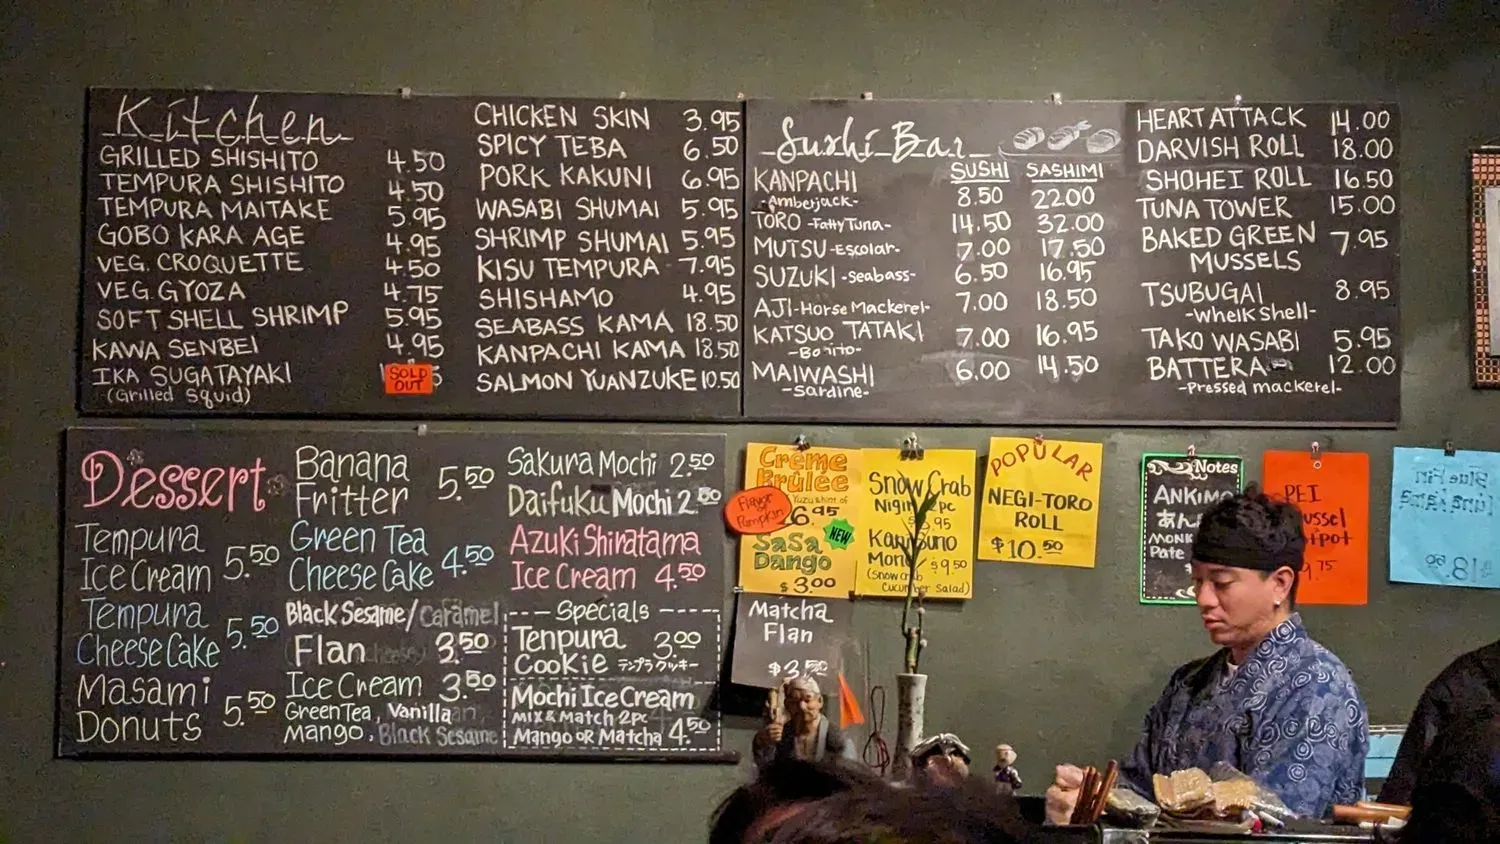 Kitchen
GRILLED SHISHITO 4.50
TEMPURA SHISHITO 4.50
TEMPURA MAITAKE 5.95
GOBO KARA AGE 4.95
VEG. CROQUETTE 4.50
VEG. GYOZA 4.75
SOFT SHELL SHRIMP 5.95
KAWA SENBEI 4.95
IKA SUGATAYAKI
SOLD OUT
(Grilled Squid)
CHICKEN SKIN 3.95
SPICY TEBA 6.50
PORK KAKUNI 6.95
WASABI SHUMAI 5.95
SHRIMP SHUMAI 5.95
KISU TEMPURA 7.95
SHISHAMO 4.95
SEABASS KAMA 18.50
KANPACHI KAMA 18.50
SALMON YUANZUKE 10.50
Sushi Bar
SUSHI SASHIMI
KANPACHI 8.50 22.00
-Amberjack-
TORO -Fatty Tuna- 14.50 32.00
MUTSU -Escolar- 7.00 17.50
SUZUKI -seabass- 6.50 16.95
AJI -Horse Mackerel- 7.00 18.50
KATSUO TATAKI 7.00 16.95
-Bonito-
MAIWASHI 6.00 14.50
-Sardine-
HEART ATTACK 14.00
DARVISH ROLL 18.00
SHOHEI ROLL 16.50
TUNA TOWER 15.00
BAKED GREEN 7.95
MUSSELS
TSUBUGAI 8.95
-Whelk Shell-
TAKO WASABI 5.95
BATTERA 12.00
-Pressed mackerel-
Dessert
Tempura
Ice Cream 5.50
Tempura
Cheese Cake 5.50
Masami
Donuts 5.50
Banana
Fritter 5.50
Green Tea
Cheese Cake 4.50
Black Sesame/Caramel
Flan 3.50
Ice Cream 3.50
Green Tea, Vanilla
Mango, Black Sesame
Sakura Mochi 2.50
Daifuku Mochi 2.50
Azuki Shiratama
Ice Cream 4.50
Specials
Tenpura 3.00
Cookie テンプラクッキー
Mochi Ice Cream
MIX & Match 2pc
Mango OR Matcha 4.50
Crème
Brûlée
Flavor of Pumpkin
6.95
NEW
SaSa
Dango
$3.00
Matcha
Flan
$3.50
Snow Crab
Nigiri 2pc
.95
Mono $9.50
(Snow crab
Cucumber Salad)
POPULAR
NEGI-TORO
ROLL
$10.50
Notes
ANKIMO
あん
MONK
Pate
PEI
9.75
Blue Fin
18.50